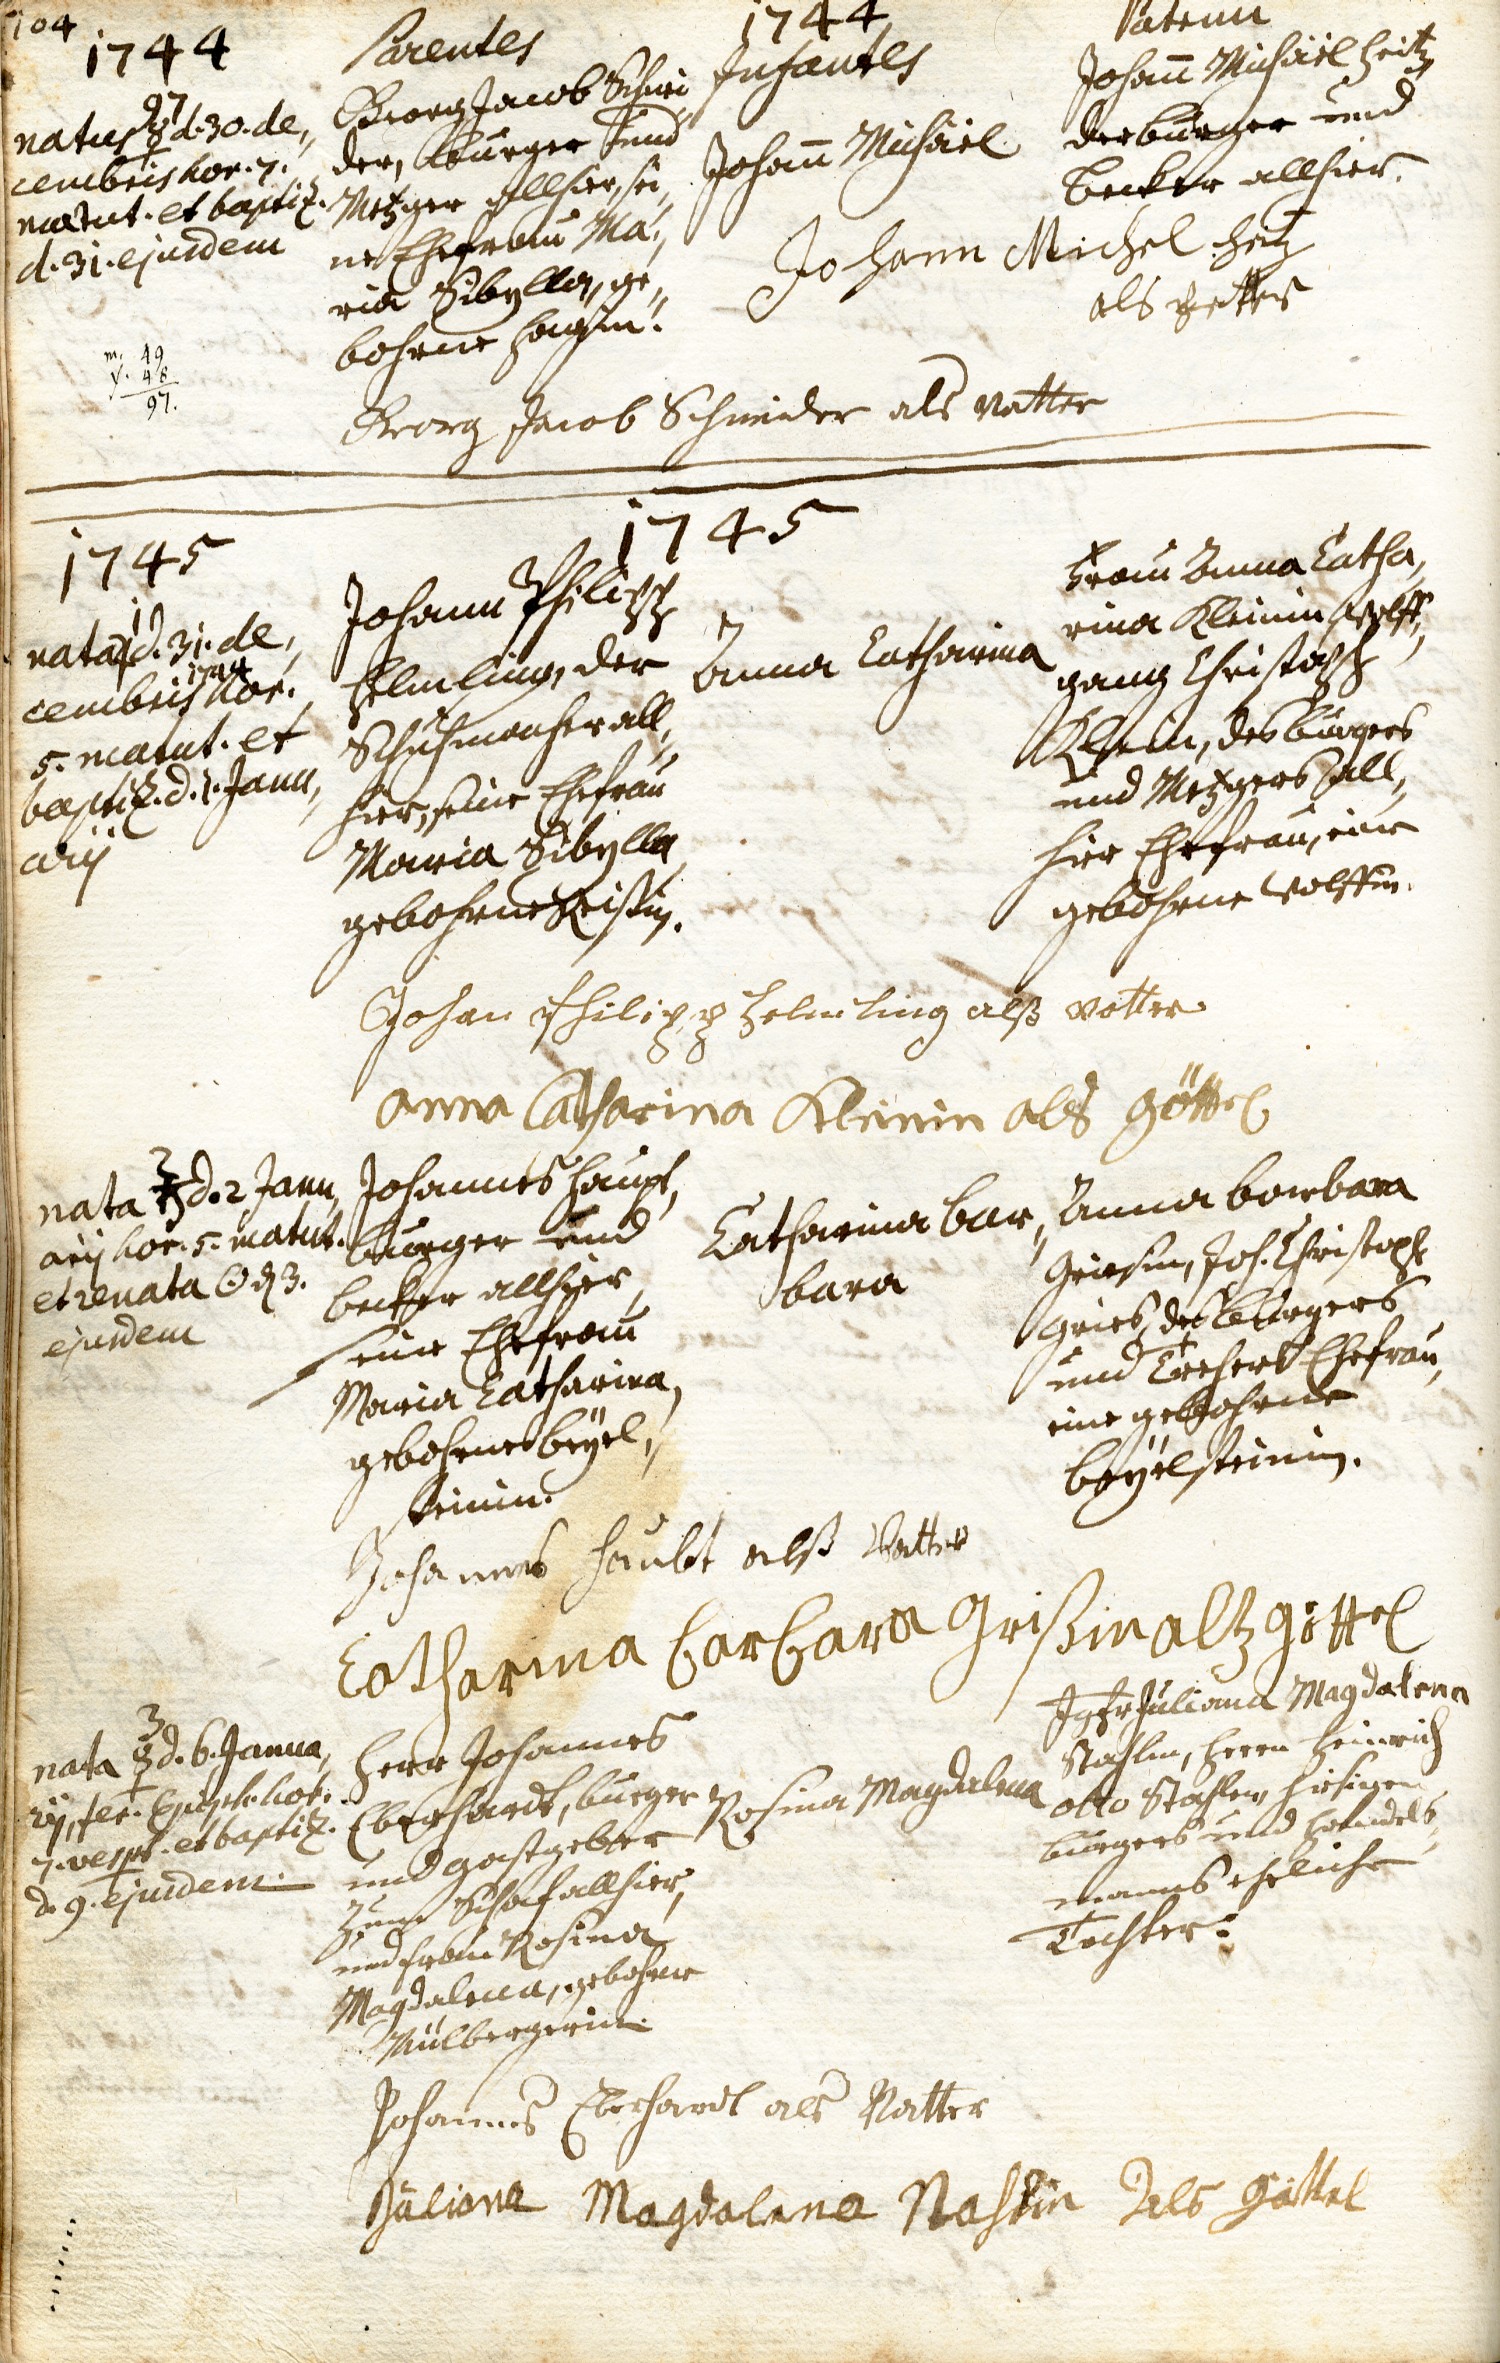 104
1744
Parentes
1744
Infantes
Patrini
97
natus ☿ d. 30. de,,
cembris hor. 7.
matut. et baptiz.
d. 31. ejusdem
m. 49
48
97.
Georg Jacob Schnei
der, burger und
Metzger allhier, sei,,
ne Ehefrau Ma,,
ria Sibylla, ge,,
bohrne
Johann Michäel
Johann Michäel Heitz
der burger und
becker allhier.
Johann Michel Heitz
als Petter
Georg Jacob Schneider als Vatter
1745
1745
1
nata d. 31. de,,
1744
cembris hor.
5. matut. et
baptiz. d. 1. Janu,,
arij
Johann Philipp
Helmling, der
Schuhmacher all,,
hier, seine Ehefrau
Maria Sibylla
gebohrne Reissin.
Anna Catharina
Frau Anna Catha,,
rina Kleinin, Wolff,,
gang Christoph
Klein, des burgers
und Metzgers all,,
hier Ehefrau, eine
gebohrne Wolffin.
Johan Philipp Helmling alß Vatter
Anna Catharina Kleinin als Göttel
2
nata ♄ d. 2 Janu,,
arij hor. 5. matut.
et renata ☉ d. 3.
ejusdem
Johannes Haupt,
burger und
becker allhier,
seine Ehefrau
Maria Catharina,
gebohrne Beyel,,
steinin.
Catharina Bar,,
bara
Anna Barbara
Griesin, Joh. Christoph
Gries, des burgers
und Ehefrau,
eine gebohrne
Beyelsteinin.
Johannes Haubt alß Vatter
Catharina Barbara Grißin altz Göttel
3
nata ☿ d. 6. Janua,,
rij, fer. Epiph. hor.
7. vesp. et baptiz.
d. 9. ejusdem.
Herr Johannes
Eberhardt, burger
und gastgeber
zum Schaf allhier,
und frau Rosina
Magdalena, gebohrne
Mülbergerin.
Rosina Magdalena
Jgfr Juliana Magdalena
Stahlin, Herrn Heinrich
Otto Stahlen, hiesigen
burgers und Handels,,
manns eheliche
Tochter.
Johannes Eberhardt als Vatter
Juliana Magdalena Stahlin Als Göttel